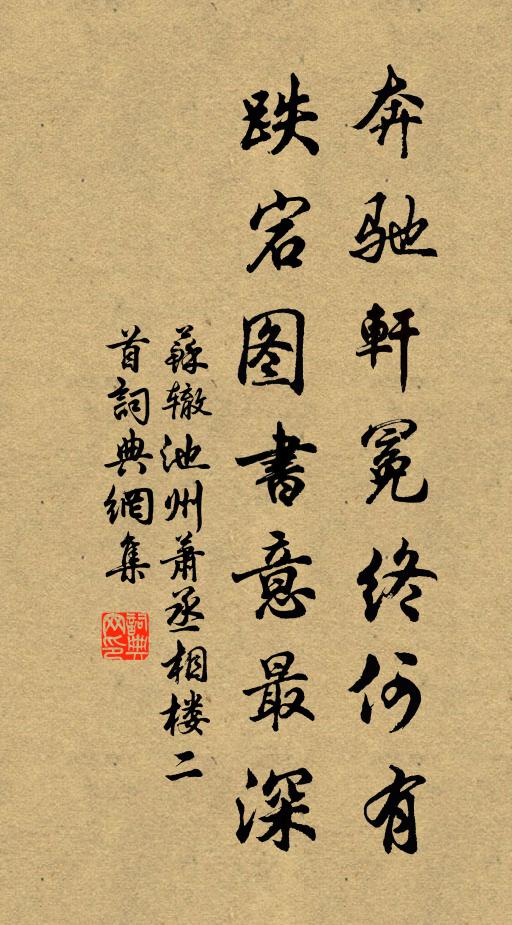 奔驰軒冕终何有
跌宕图書意最深
蘇辙池州萧丞相楼二
首詞典網集
詞典網印